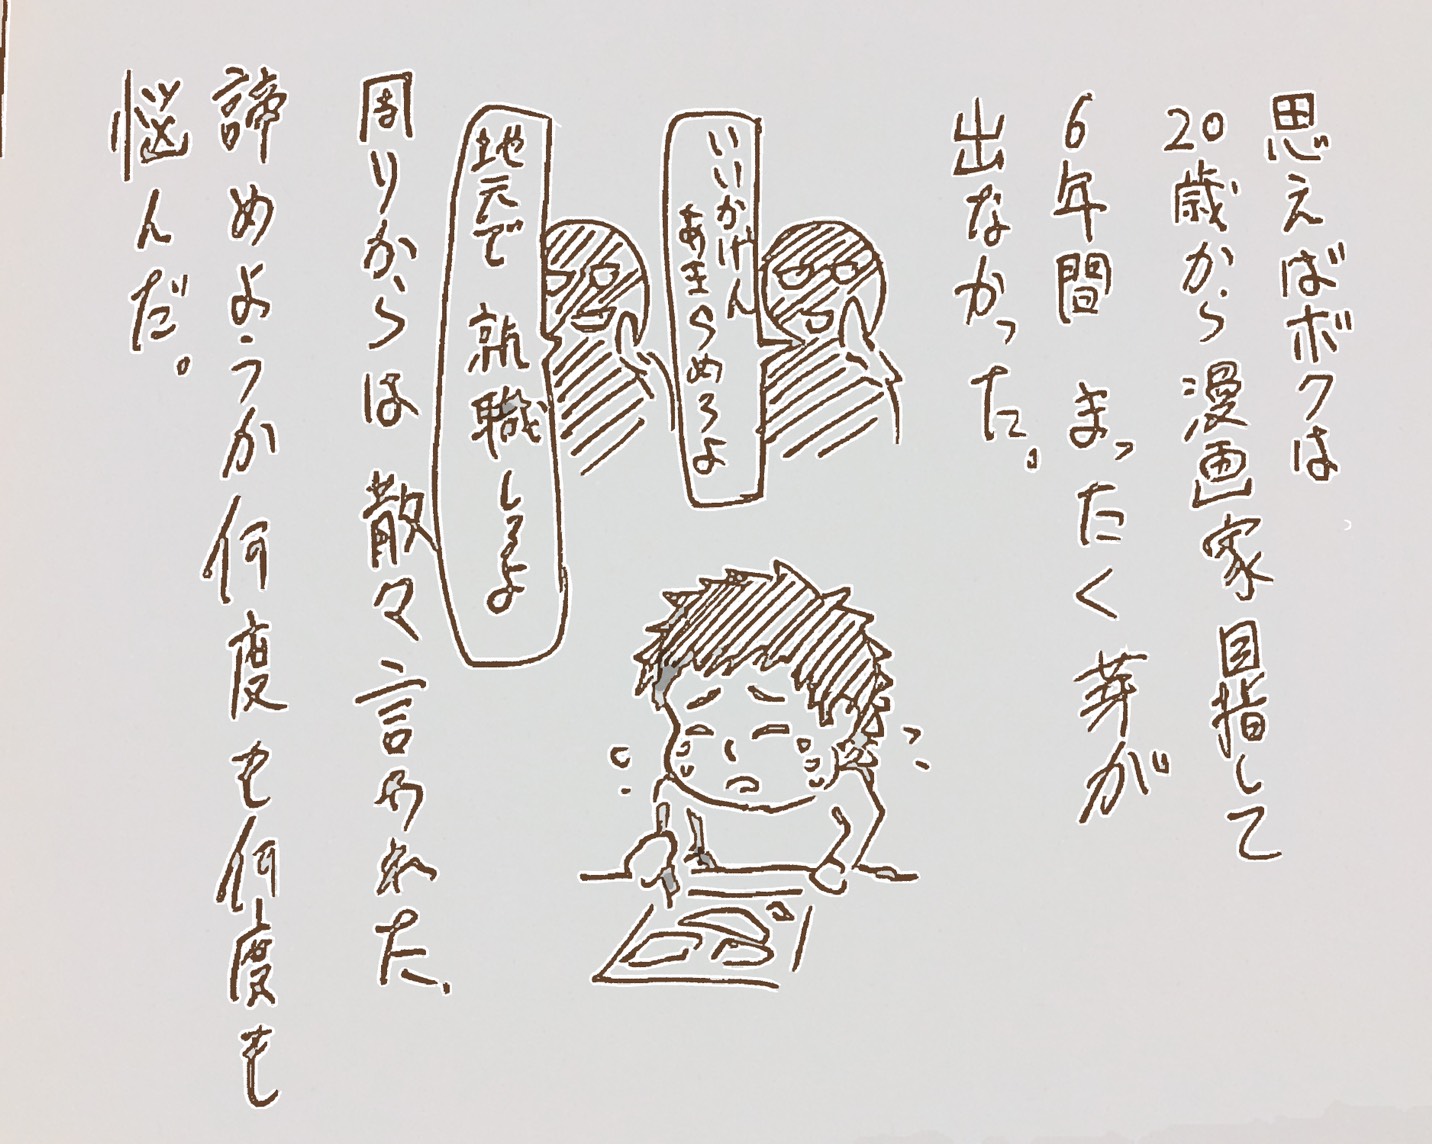 思えばボクは
20歳から漫画家目指して
6年間 まったく芽が
出なかった。
いいかげん
あきらめろよ
地元で 就職しろよ
周りからは 散々言われた.
諦めようか何度も何度も
悩んだ。